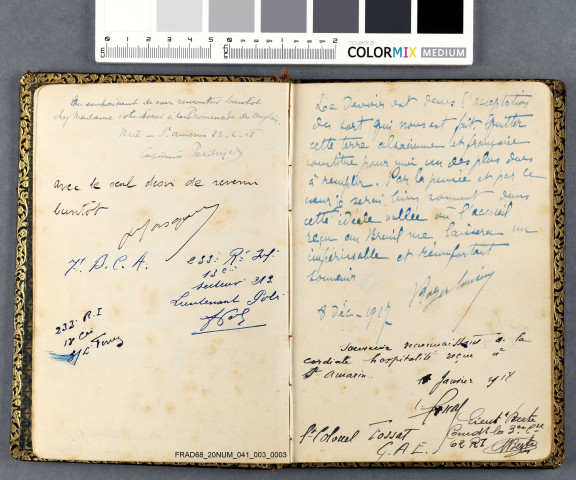 COLORMIX MEDIUM
En souhaitant de nous rencontrer bientôt
chez Madame
22-6-18
avec le seul désir de revenir
bientôt
7e B.C.A.
233e Ré Inf.
13e Cie
secteur 319
Lieutenant
233 R.I
18 Cie
S/L
Le Devoir est dans l'acceptation
du sort qui nous est fait. Quitter
cette terre alsacienne et française
constitue pour moi un des plus durs
à remplir. Par la pensée et par le
cœur je serai bien souvent dans
cette "idéale" vallée où l'accueil
reçu au Breuil me laissera un
impérissable et réconfortant
souvenir
8 Déc. 1917
Souvenir reconnaissant de la
cordiale hospitalité reçue à
St Amarin.
Janvier 1918
Lt Colonel Tossat
G.A.E.
Lieut. Berte
Comdt la 3me Cie
62 RI
FRAD68_20NUM_041_003_0003